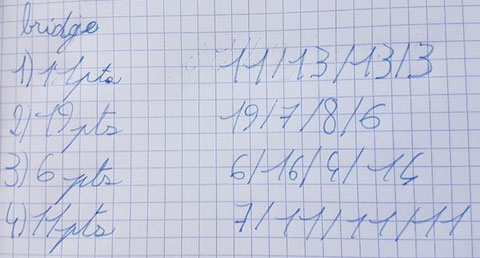 bridge
1) 11pts 11/13/13/3
2) 19pts 19/7/8/6
3) 6 pts 6/16/4/14
4) 11pts 7/11/11/11